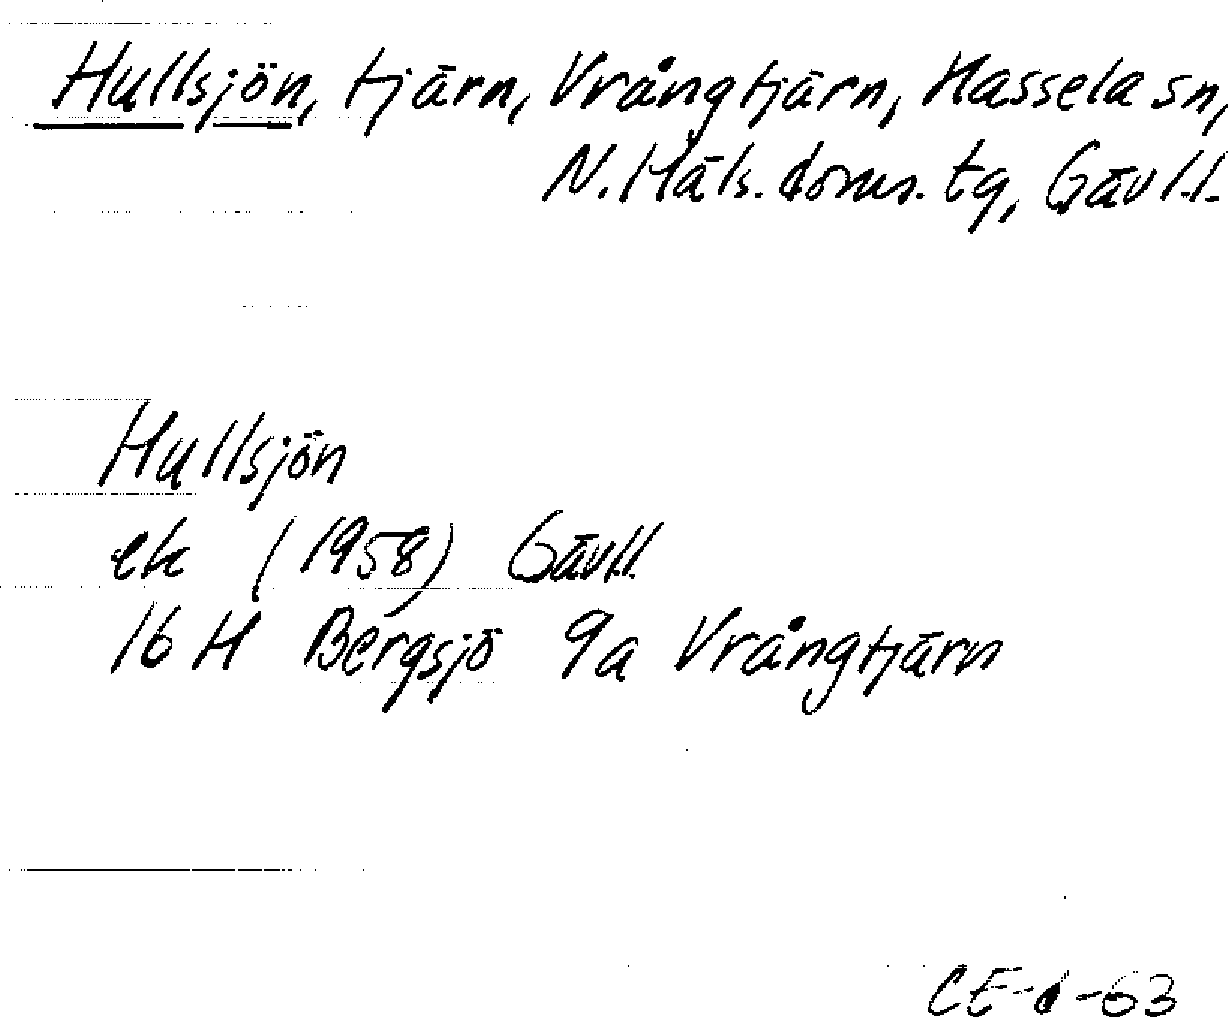 Hullsjön, tjärn, Vrångtjärn, Hassela sn,
N. Häls. doms. tg, Gävl.l.
Hullsjön
ek (1958) Gävl.l.
16 H Bergsjö 9a Vrångtjärn
CE-d-63